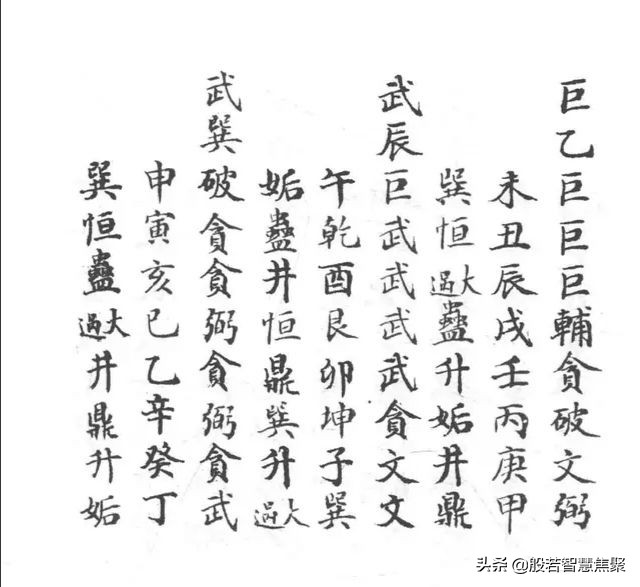 巨乙巨巨巨輔貪破文弼
未丑辰戌壬丙庚甲
巽恒大過蠱升姤井鼎
武辰巨武武武武貪文文
午乾酉艮卯坤子巽
姤蠱井恒鼎巽升大過
武巽破貪貪弼貪弼貪武
申寅亥巳乙辛癸丁
巽恒蠱大過井鼎升姤
头条 @般若智慧焦聚